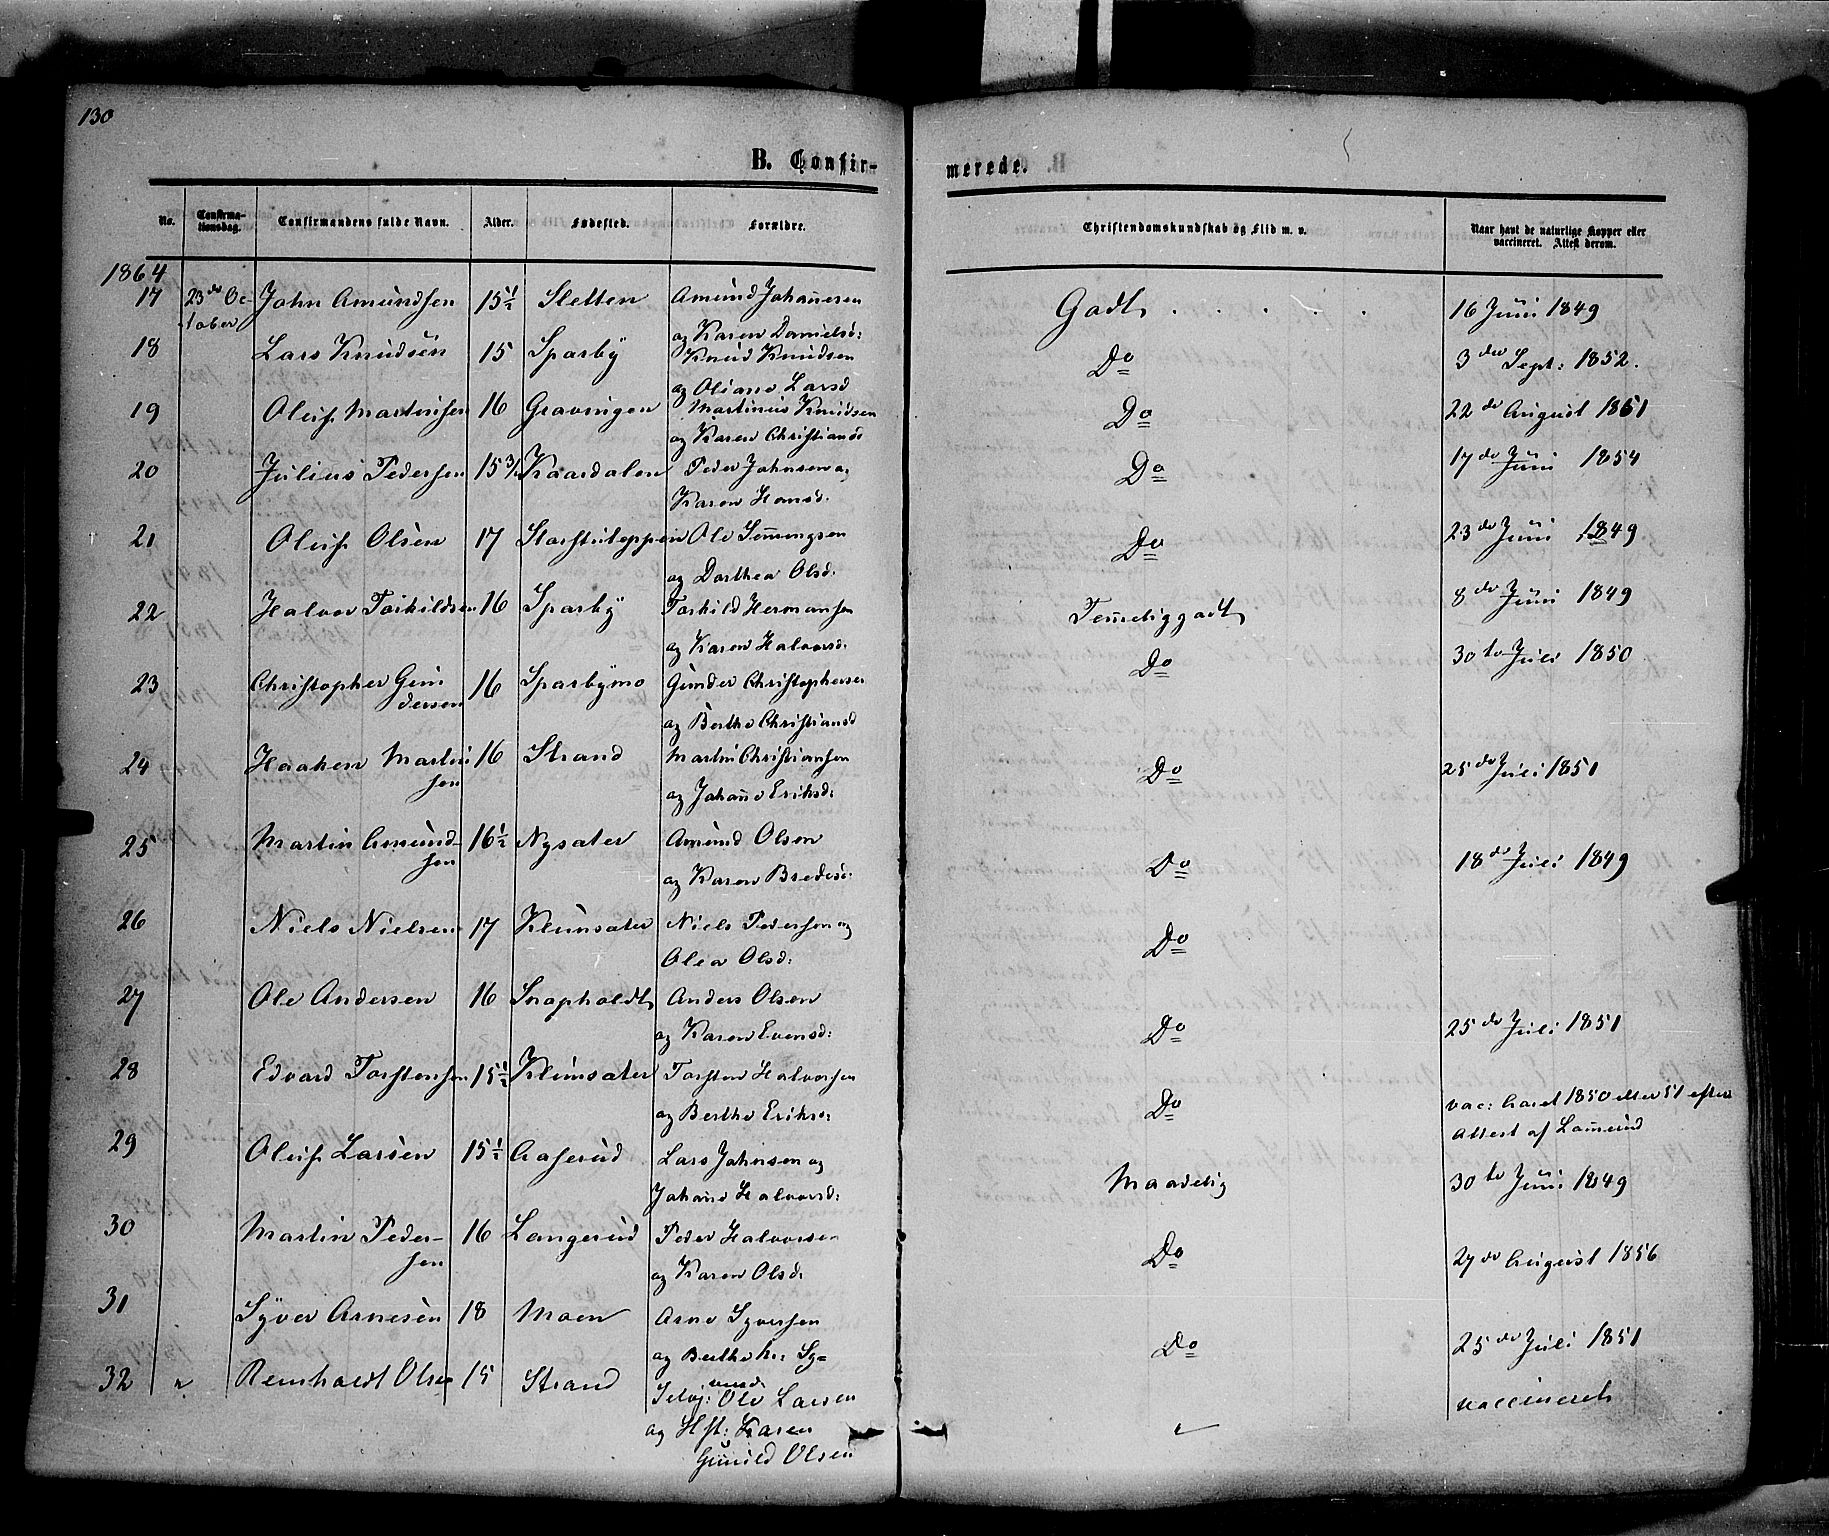 130
B. Confir-
merede.
No.
Confirma-
tionsdag.
Confirmandens fulde Navn.
Alder.
Fødested.
Forældre.
Christendomskundskab og Flid m. v.
Naar havt de naturlige Kopper eller
vaccineret. Attest derom.
1864
17 23de Oc- John Amundsen 15½ Sletten Amund Johannesen Godt . . . . . 16 Juni 1849
tober og Karen Danielsd:
18 Lars Knudsen 15 Sparby Knud Knudsen Do 3die Sept: 1852.
og Oliane Larsd
19 Oluf Martinsen 16 Gravingen Martinius Knudsen Do 22de August 1851
og Karen Christiansd
20 Julius Pedersen 15¾ Kaardalen Peder Johnsen og Do 17de Juni 1854
Karen Hansd:
21 Oluf Olsen 17 Ole Do 23de Juni 1849
og Dorthea Olsd:
22 Halvor Torkildsen 16 Sparby Torkild Hermansen Temelig godt 8de Juni 1849
og Karen Halvorsd:
23 Christopher Gun 16 Sparbymo Gunder Christophersen Do 30te Juli 1850
dersen og Berthe Christiansd
24 Haaken Martin 16 Strand Martin Christiansen Do 25de Juli 1851
sen og Johanne Eriksd:
25 Martin Amund- 16½ Nysater Amund Olsen Do 18de Juli 1849
sen og Karen Bredesd:
26 Niels Nielsen 17 Klunsater Niels Pedersen og Do
Olea Olsd:
27 Ole Andersen 16 Snapholdt Anders Olsen Do 25de Juli 1851
og Karen Evensd:
28 Edvard Torstensen 15½ Klunsater Torsten Halvorsen Do vac: Aaret 1850 eller 51 efter
og Berthe Eriksd: Attest af
29 Oluf Larsen 15½ Aaserud Lars Johnsen og Maadelig 30te Juni 1849
Johanne Halvorsd:
30 Martin Peder- 16 Langerud Peder Halvorsen Do 27de August 1856
sen og Karen Olsd:
31 Syver Arnesen 18 Moen Arne Syversen Do 25de Juli 1851
og Berthe M: Sy=
versd
32 Reinhardt Olsen 15 Strand Selvej: Ole Larsen vaccineret
og Hst: Karen
Gunild Olsen